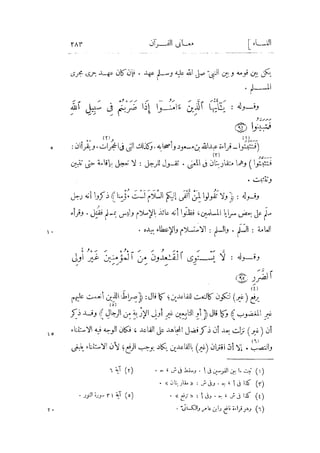 النساء ] معانى القرآن ٣٨٣
يكن بين قومه وبين النبىّ صلى الله عليه وسلم عهد . فإن كان عهد جرى مجرى
المسلم .
وقوله : يَٰٓأَيُّهَا ٱلَّذِينَ ءَامَنُوٓا۟ إِذَا ضَرَبْتُمْ فِى سَبِيلِ ٱللَّهِ
فَتَبَيَّنُوا۟ ٩٤
(فَتَثَبَّتُوا) قراءة عبدالله بن مسعود وأصحابه . وكذلك التى فى الحجرات . ويُقْرَآن : ٥
(فَتَثَبَّتُوا) وهما متقاربتان فى المعنى . تقول للرجل : لا تعجل بإقامة حتى تتبين
وتتثبت .
وقوله : (ولا تَقُولُوا لِمَنْ أَلْقَى إليكم السَّلَامَ لَسْتَ مُؤْمِنًا) ذكروا أنه رجل
سلّم على بعض سرايا المسلمين ، فظنّوا أنه عائذ بالإسلام وليس بمسلم فقُتِل . وقرأه
العامة : السَّلَم . والسلم : الاستسلام والإعطاء بيده . ١٠
وقوله : لَا يَسْتَوِى ٱلْقَٰعِدُونَ مِنَ ٱلْمُؤْمِنِينَ غَيْرُ أُو۟لِى
ٱلضَّرَرِ ٩٥
يرفع (غير) لتكون كالنعت للقاعدين ؛ كما قال : (صِرَاطَ الذين أنعمت عليهم
غيرِ المغضوب) وكما قال (أو التابعين غيرِ أولى الإرْبةِ مِن الرجالِ) وقد ذكر
أن (غير) نزلت بعد أن ذكر فضل المجاهد على القاعد ، فكان الوجه فيه الاستثناء ١٥
والنصب . إلا أن اقتران (غير) بالقاعدين يكاد يوجب الرفع ؛ لأن الاستثناء ينبغى
(١) ثبت ما بين القوسين فى أ . وسقط فى ش ، ج . (٢) آية ٦
(٣) كذا فى أ ، ج . وفى ش : « مقاربتان »
(٤) كذا فى ش ، ج . وفى أ : « ترفع » . (٥) آية ٣١ سورة النور .
(٦) وهو قراءة نافع وابن عامر والكسائىّ . ٢٠